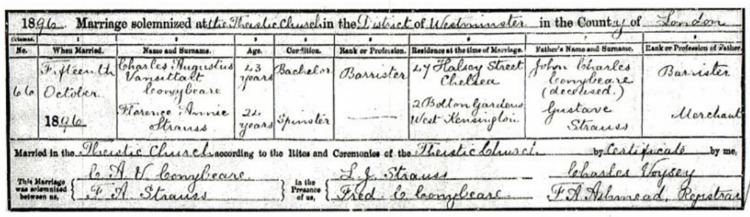 1896. Marriage solemnized at the Theistic Church in the District of Westminster in the County of London
Columns. 1 2 3 4 5 6 7 8
No. When Married. Name and Surname. Age. Condition. Rank or Profession. Residence at the time of Marriage. Father's Name and Surname. Rank or Profession of Father.
66 Fifteenth October 1896 Charles Augustus Vansittart Conybeare 43 years Bachelor Barrister 47 Halsey Street Chelsea John Charles Conybeare (deceased) Barrister
Florence Annie Strauss 24 years Spinster 2 Bolton Gardens West Kensington Gustave Strauss Merchant
Married in the Theistic Church according to the Rites and Ceremonies of the Theistic Church by Certificate by me,
This Marriage was solemnized between us, C. A. V. Conybeare F. A. Strauss in the Presence of us, L. J. Strauss Fred. C. Conybeare Charles Voysey F A Ashmead, Registrar